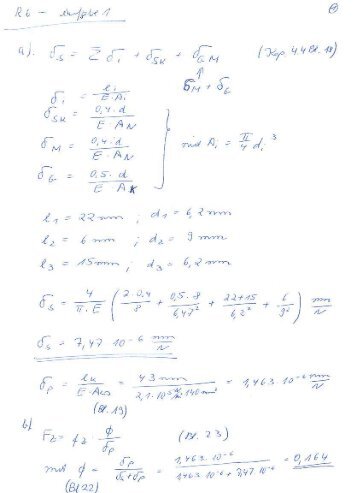 R6 - Aufgabe 1
a). δs = Σ δi + δSK + δGM (Kap. 4.4 Bl. 18)
δM + δG
δi = li / E·Ai
δSK = 0,4·d / E·AN
δM = 0,4·d / E·AN
δG = 0,5·d / E·AK
mit Ai = π/4 di²
l1 = 22 mm ; d1 = 6,2 mm
l2 = 6 mm ; d2 = 9 mm
l3 = 15 mm ; d3 = 6,2 mm
δs = 4/π·E ( 2·0,4/8 + 0,5·8/6,47² + 22+15/6,2² + 6/9² ) mm/N
δs = 7,47·10⁻⁶ mm/N
δp = lk / E·Aers = 43 mm / 2,1·10⁵ · 140 mm² = 1,463·10⁻⁶ mm/N
(Bl. 19)
b) = φ / δp (Bl. 23)
mit φ = δp / δs+δp = 1,463·10⁻⁶ / 1,463·10⁻⁶ + 7,47·10⁻⁶ = 0,164
(Bl 22)